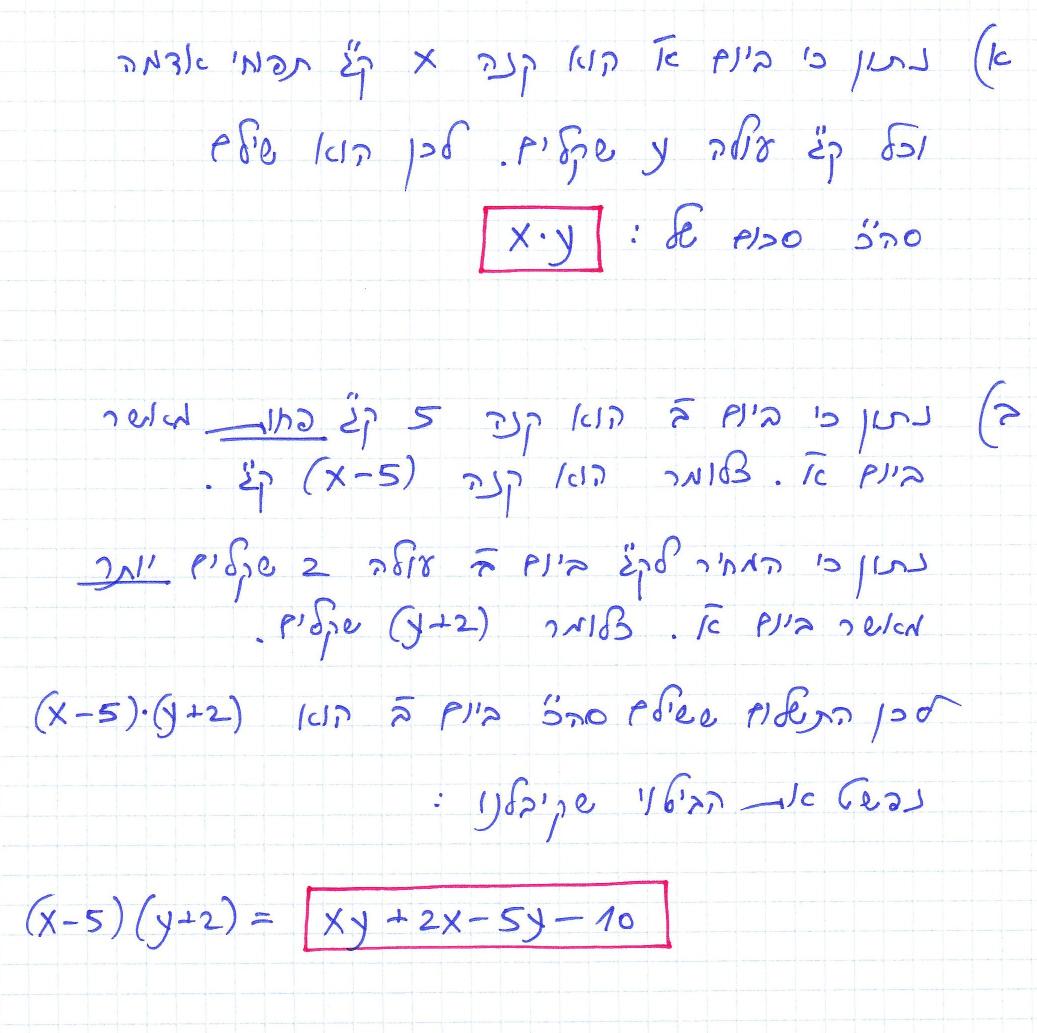 א) נתון כי ביום א' הוא קנה x ק"ג תפוחי אדמה
וכל ק"ג עולה y שקלים. לכן הוא שילם
סה"כ סכום של : x·y
ב) נתון כי ביום ב' הוא קנה 5 ק"ג פחות מאשר
ביום א'. כלומר הוא קנה (x-5) ק"ג.
נתון כי המחיר לק"ג ביום ב' עולה 2 שקלים יותר
מאשר ביום א'. כלומר (y+2) שקלים.
לכן התשלום ששילם סה"כ ביום ב' הוא (x-5)·(y+2)
נפשט את הביטוי שקיבלנו :
(x-5)(y+2) = xy+2x-5y-10